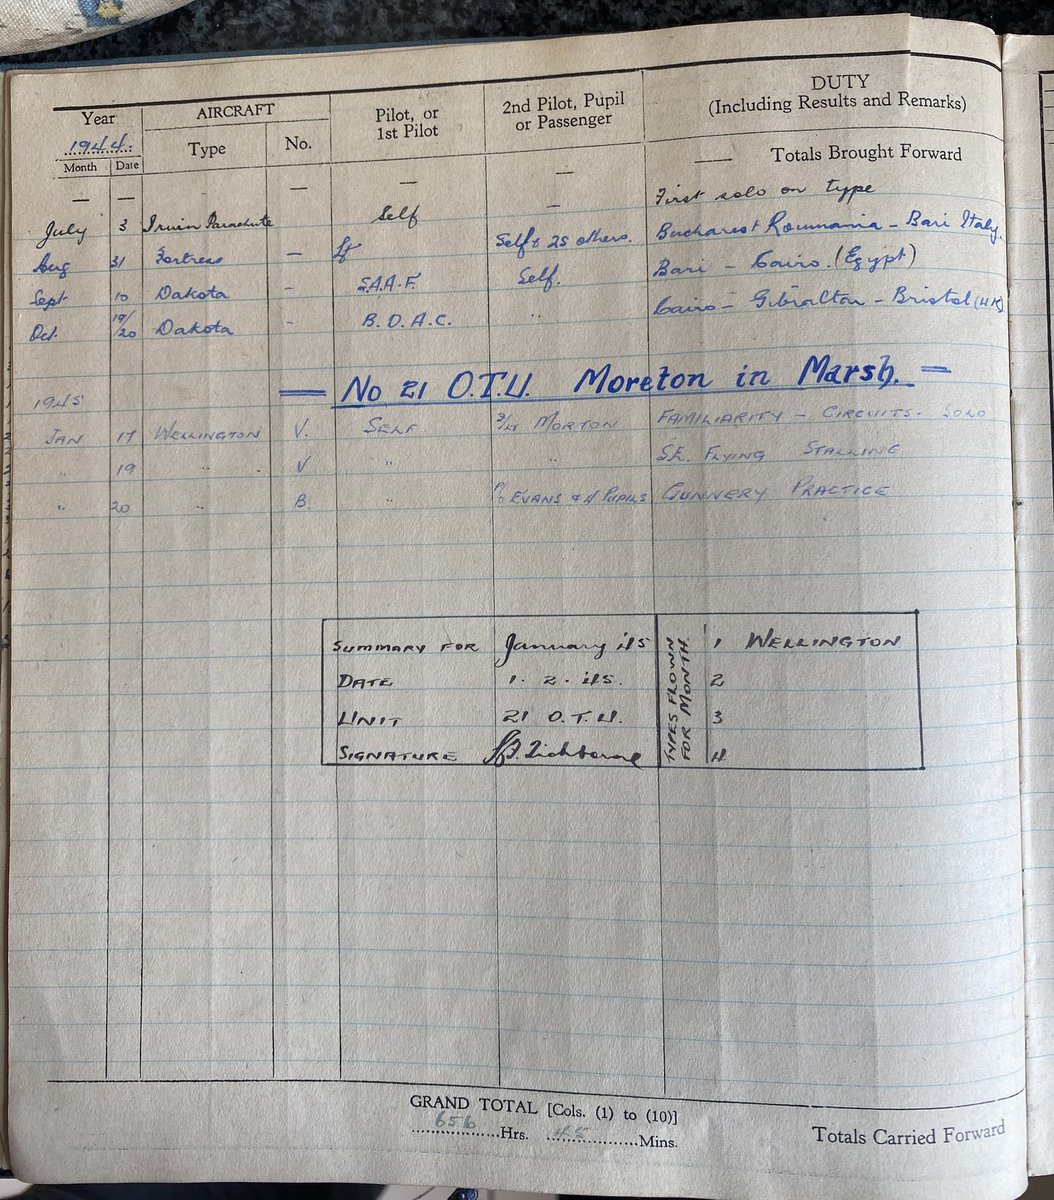 Year AIRCRAFT Pilot, or 1st Pilot 2nd Pilot, Pupil or Passenger DUTY (Including Results and Remarks)
1944. Type No.
Month Date
— — — — — —— Totals Brought Forward
July 3 Irwin Parachute Self – First solo on type
Aug 31 Fortress – Self & 25 others. Bucharest Roumania – Bari Italy.
Sept 10 Dakota – S.A.A.F. Self. Bari – Cairo. (Egypt)
Oct. 19/20 Dakota – B.O.A.C. " Cairo – Gibraltar – Bristol (UK)
— No 21 O.T.U. Moreton in Marsh. —
1945
JAN 17 WELLINGTON V. SELF MORTON FAMILIARITY – CIRCUITS. SOLO
" 19 " V " " S.E. FLYING STALLING
" 20 " B. " P/O EVANS & 4 PUPILS GUNNERY PRACTICE
SUMMARY FOR January 45
DATE 1. 2. 45.
UNIT 21 O.T.U.
SIGNATURE
TYPES FLOWN FOR MONTH.
1 WELLINGTON
2
3
4
GRAND TOTAL [Cols. (1) to (10)]
656 Hrs. 45 Mins.
Totals Carried Forward